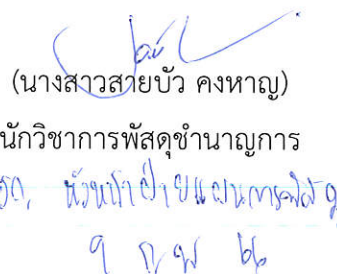 (นางสาวสายบัว คงหาญ)
นักวิชาการพัสดุชำนาญการ
หัวหน้าฝ่ายแผนการพัสดุ